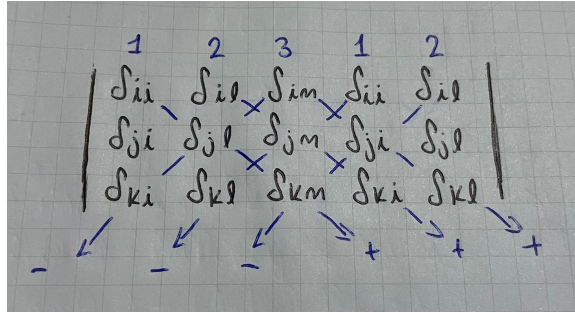 1 2 3 1 2
δii δil δim δii δil
δji δjl δjm δji δjl
δki δkl δkm δki δkl
- - - + + +